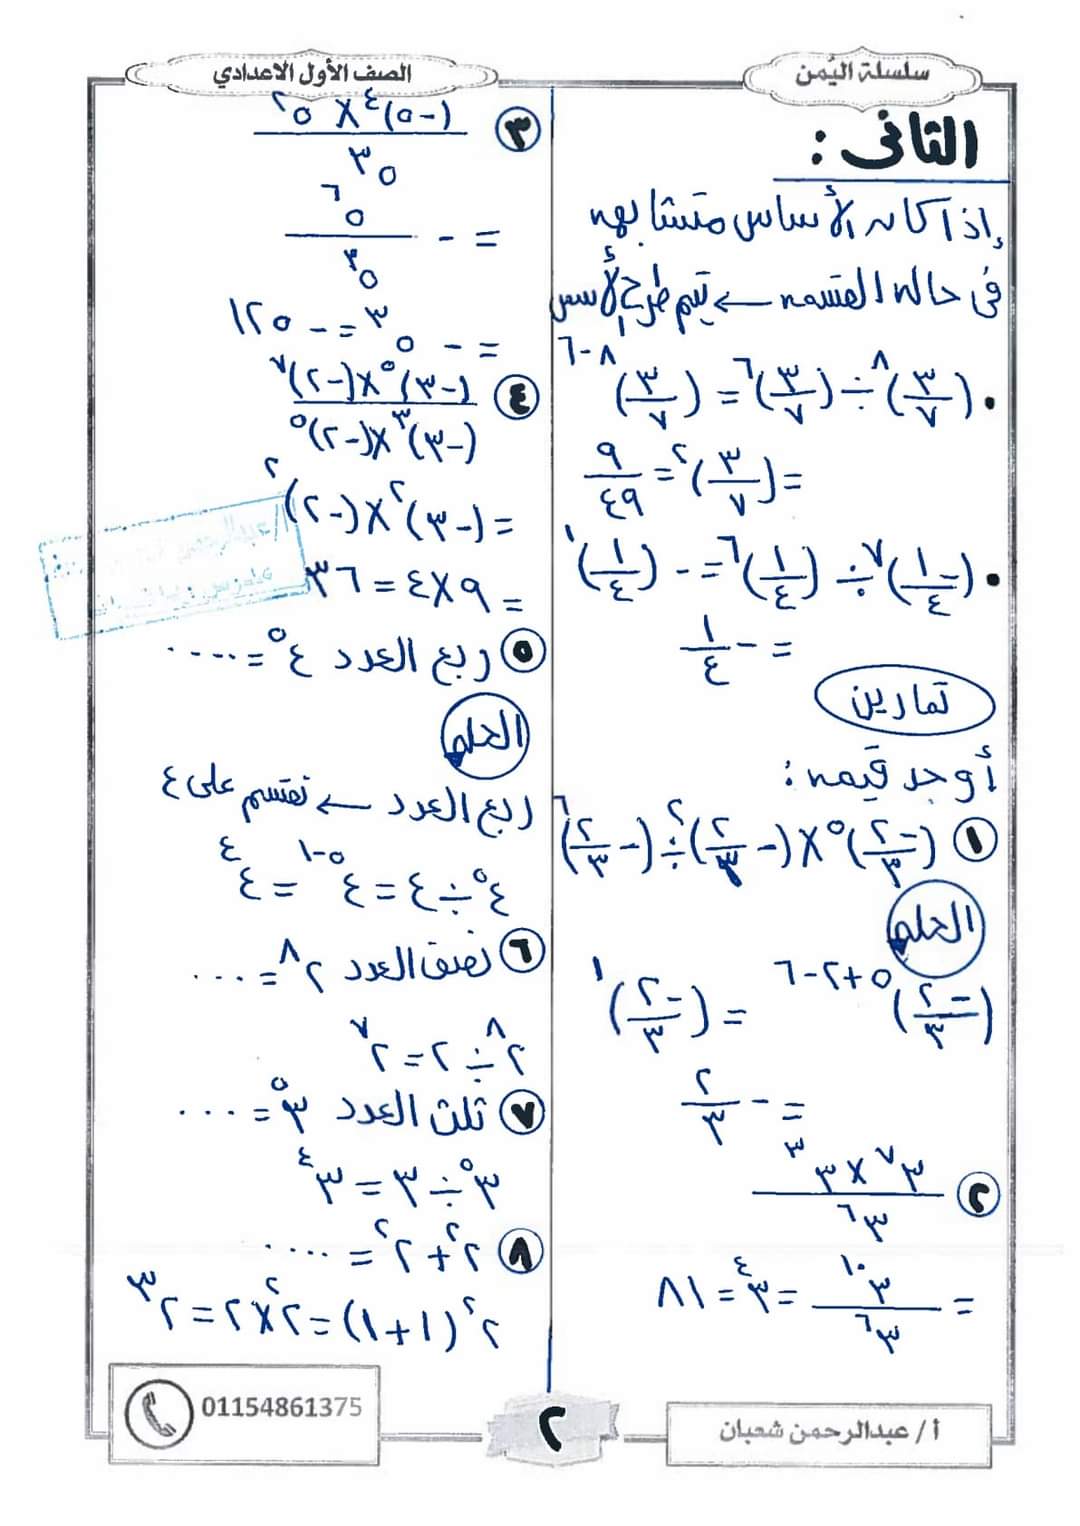 سلسلة اليُمن
الصف الأول الاعدادي
الثانى :
إذا كانه الأساس متشابهه
فى حاله القسمه ← يتم طرح الأسس
• (٣/٧)^٨ ÷ (٣/٧)^٦ = (٣/٧)^٨-٦
= (٣/٧)^٢ = ٩/٤٩
• (-١/٤)^٧ ÷ (١/٤)^٦ = - (١/٤)^١
= - ١/٤
تمارين
أوجد قيمه :
١ (-٢/٣)^٥ × (- ٢/٣)^٢ ÷ (- ٢/٣)^٦
الحله
(-٢/٣)^٥+٢-٦ = (-٢/٣)^١
= - ٢/٣
٢ ٣^٧ × ٣^٣ / ٣^٦
= ٣^١٠ / ٣^٦ = ٣^٤ = ٨١
٣ (-٥)^٤ × ٥^٢ / ٥^٣
= - ٥^٦ / ٥^٣
= - ٥^٣ = - ١٢٥
٤ (-٣)^٥ × (-٢)^٧ / (-٣)^٣ × (-٢)^٥
= (-٣)^٢ × (-٢)^٢
= ٩ × ٤ = ٣٦
أ/عبدالرحمن
٥ ربع العدد ٤^٥ = ....
الحله
ربع العدد ← نقسم على ٤
٤^٥ ÷ ٤ = ٤^٥-١ = ٤^٤
٦ نصف العدد ٢^٨ = ...
٢^٨ ÷ ٢ = ٢^٧
٧ ثلث العدد ٣^٥ = ...
٣^٥ ÷ ٣ = ٣^٤
٨ ٢^٢ + ٢^٢ = ....
٢^٢ (١+١) = ٢^٢ × ٢ = ٢^٣
أ / عبدالرحمن شعبان
٢
01154861375